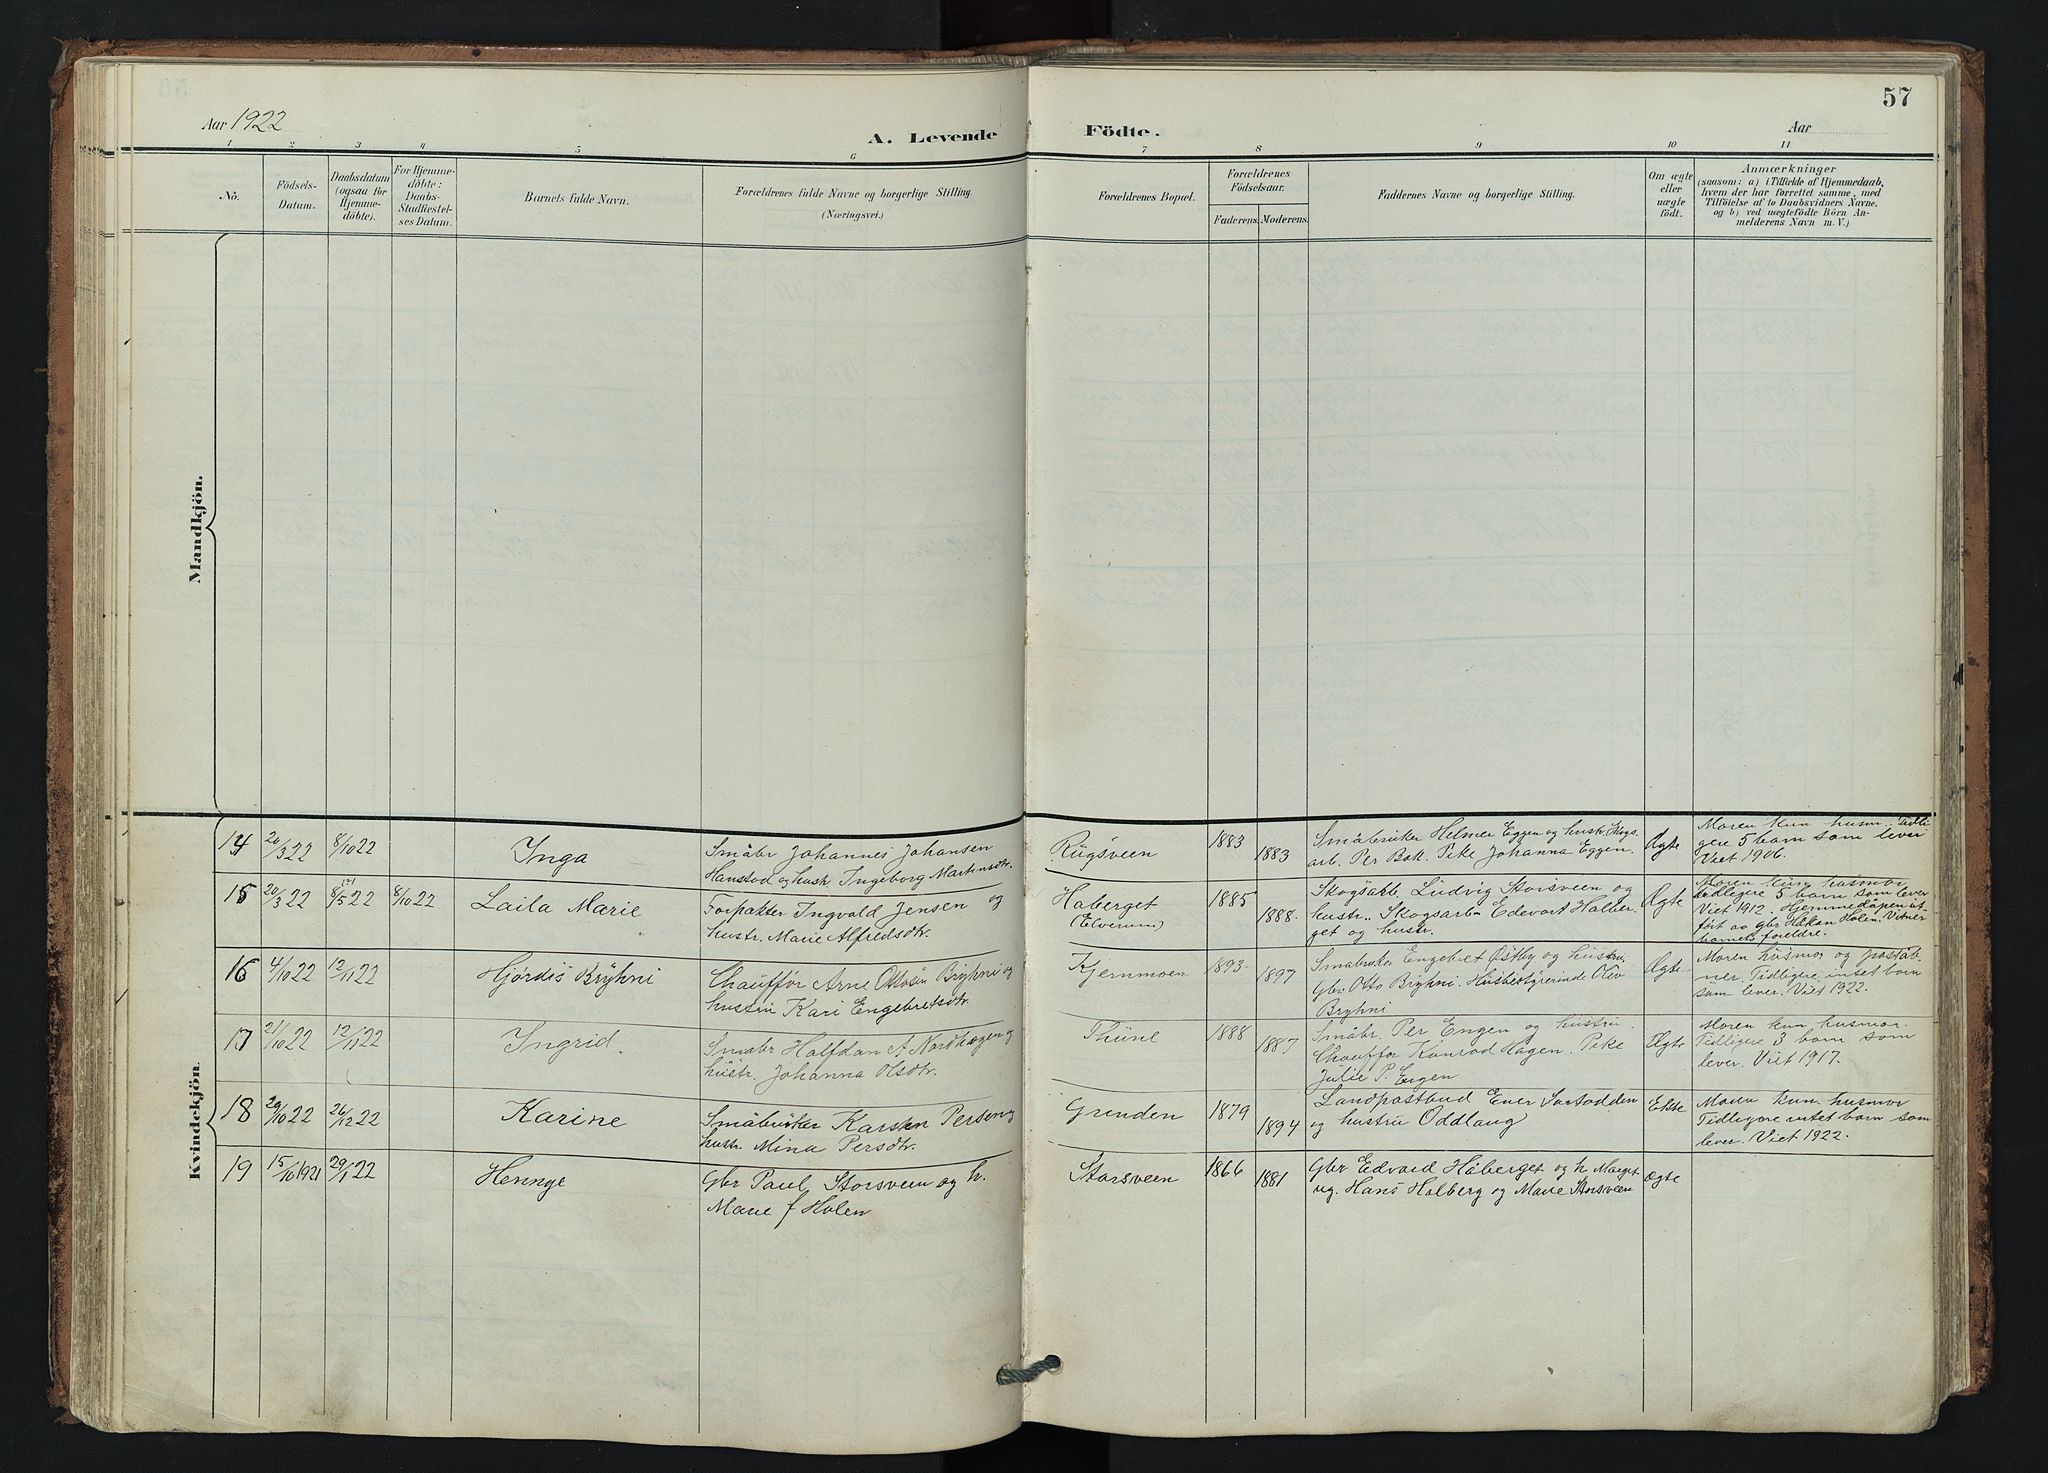 57
Aar 1922
A. Levende Födte.
Aar
1 2 3 4 5 6 7 8 9 10 11
No.
Födsels-
Datum.
Daabsdatum
(ogsaa for
Hjemme-
döbte).
For Hjemme-
döbte:
Daabs-
Stadfæstel-
ses Datum.
Barnets fulde Navn.
Forældrenes fulde Navne og borgerlige Stilling.
(Næringsvei.)
Forældrenes Bopæl.
Forældrenes
Födselsaar.
Faderens. Moderens.
Faddernes Navne og borgerlige Stilling.
Om ægte
eller
uægte
födt.
Anmærkninger
(saasom: a) i Tilfælde af Hjemmedaab,
hvem der har forrettet samme, med
Tilföielse af to Daabsvidners Navne,
og b) ved uægtefödte Börn An-
melderens Navn m. V.)
Mandkjön.
Kvindekjön.
14 20/3 22 8/10 22 Inga
Småbr Johannes Johansen
Hanstad og hustr. Ingeborg Martinsdtr.
Rügsveen 1883 1883
Småbruker Helmer Eggen og hustr. Skogs.
arb. Per Bak. Pike Johanna Eggen.
Ægte
Moren kun husm. Tidli
gere 5 barn som lever
Viet 1906.
15 20/3 22 8/5 22 8/10 22 Laila Marie
Forpakter Ingvald Jensen og
hustr. Marie Alfredsdtr.
Haberget
(Elverum)
1885 1888.
Skogsarb. Ludvig Storsveen og
hustr. Skogsarb. Edevart Halber
get og hustr.
Ægte
Moren kun husmor
tidligere 5 barn som lever
Viet 1912. Hjemmedåpen ut
ført av gbr Håken Holen. Vitner
barnets foreldre.
16 4/10 22 12/11 22 Hjørdis Bryhni
Chauffør Arne Ottosen Bryhni og
hustru Kari Engebretsdtr.
Kjernmoen 1893 1897
Småbruker Engebret Østby og hustru,
Gbr Otto Bryhni. Husbestyrerinde Oliv
Bryhni
Ægte
Moren husmor og poståb-
ner. Tidligere intet barn
som lever. Viet 1922.
17 21/10 22 12/11 22 Ingrid.
Småbr Halfdan A Nordhagen og
hustr. Johanna Olsdtr.
Thune 1888 1887
Småbr. Per Engen og hustru.
Chauffør Konrad Hagen. Pike
Julie P. Engen
Ægte
Moren kun husmor.
Tidligere 3 barn som
lever. Viet 1917.
18 29/10 22 26/12 22 Karine
Småbruker Karsten Persen og
hustr. Mina Persdtr.
Grinden 1879 1894
Landpostbud Ener Sortodden
og hustru Oddlaug
Ekte
Moren kun husmor
Tidligere intet barn som
lever. Viet 1922.
19 15/10 1921 29/1 22 Hennge
Gbr Paul Storsveen og h.
Marie f Holen
Storsveen 1866 1881
Gbr Edvard Håberget og h Marget
ug. Hans Halberg og Marie Storsveen
ægte